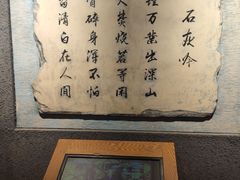 石灰吟
锤万凿出深山
火焚烧若等闲
骨碎身浑不怕
留清白在人间